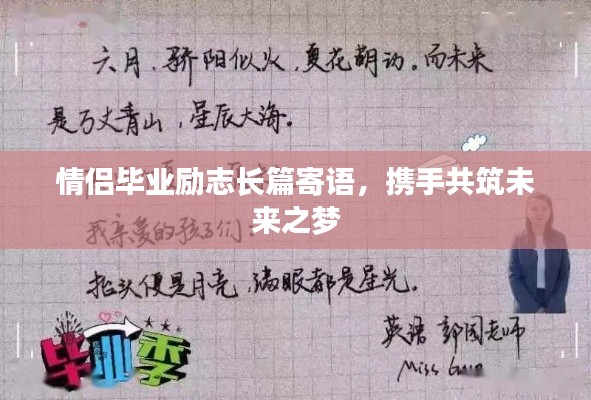 六月、骄阳似火,夏花萌动。而未来
是万丈青山,星辰大海。
情侣毕业励志长篇寄语,携手共筑未
来之梦
我亲爱的孩子们:
抬头便是月亮,满眼都是星光。
英语 郭园老师
Miss Guo
毕业季